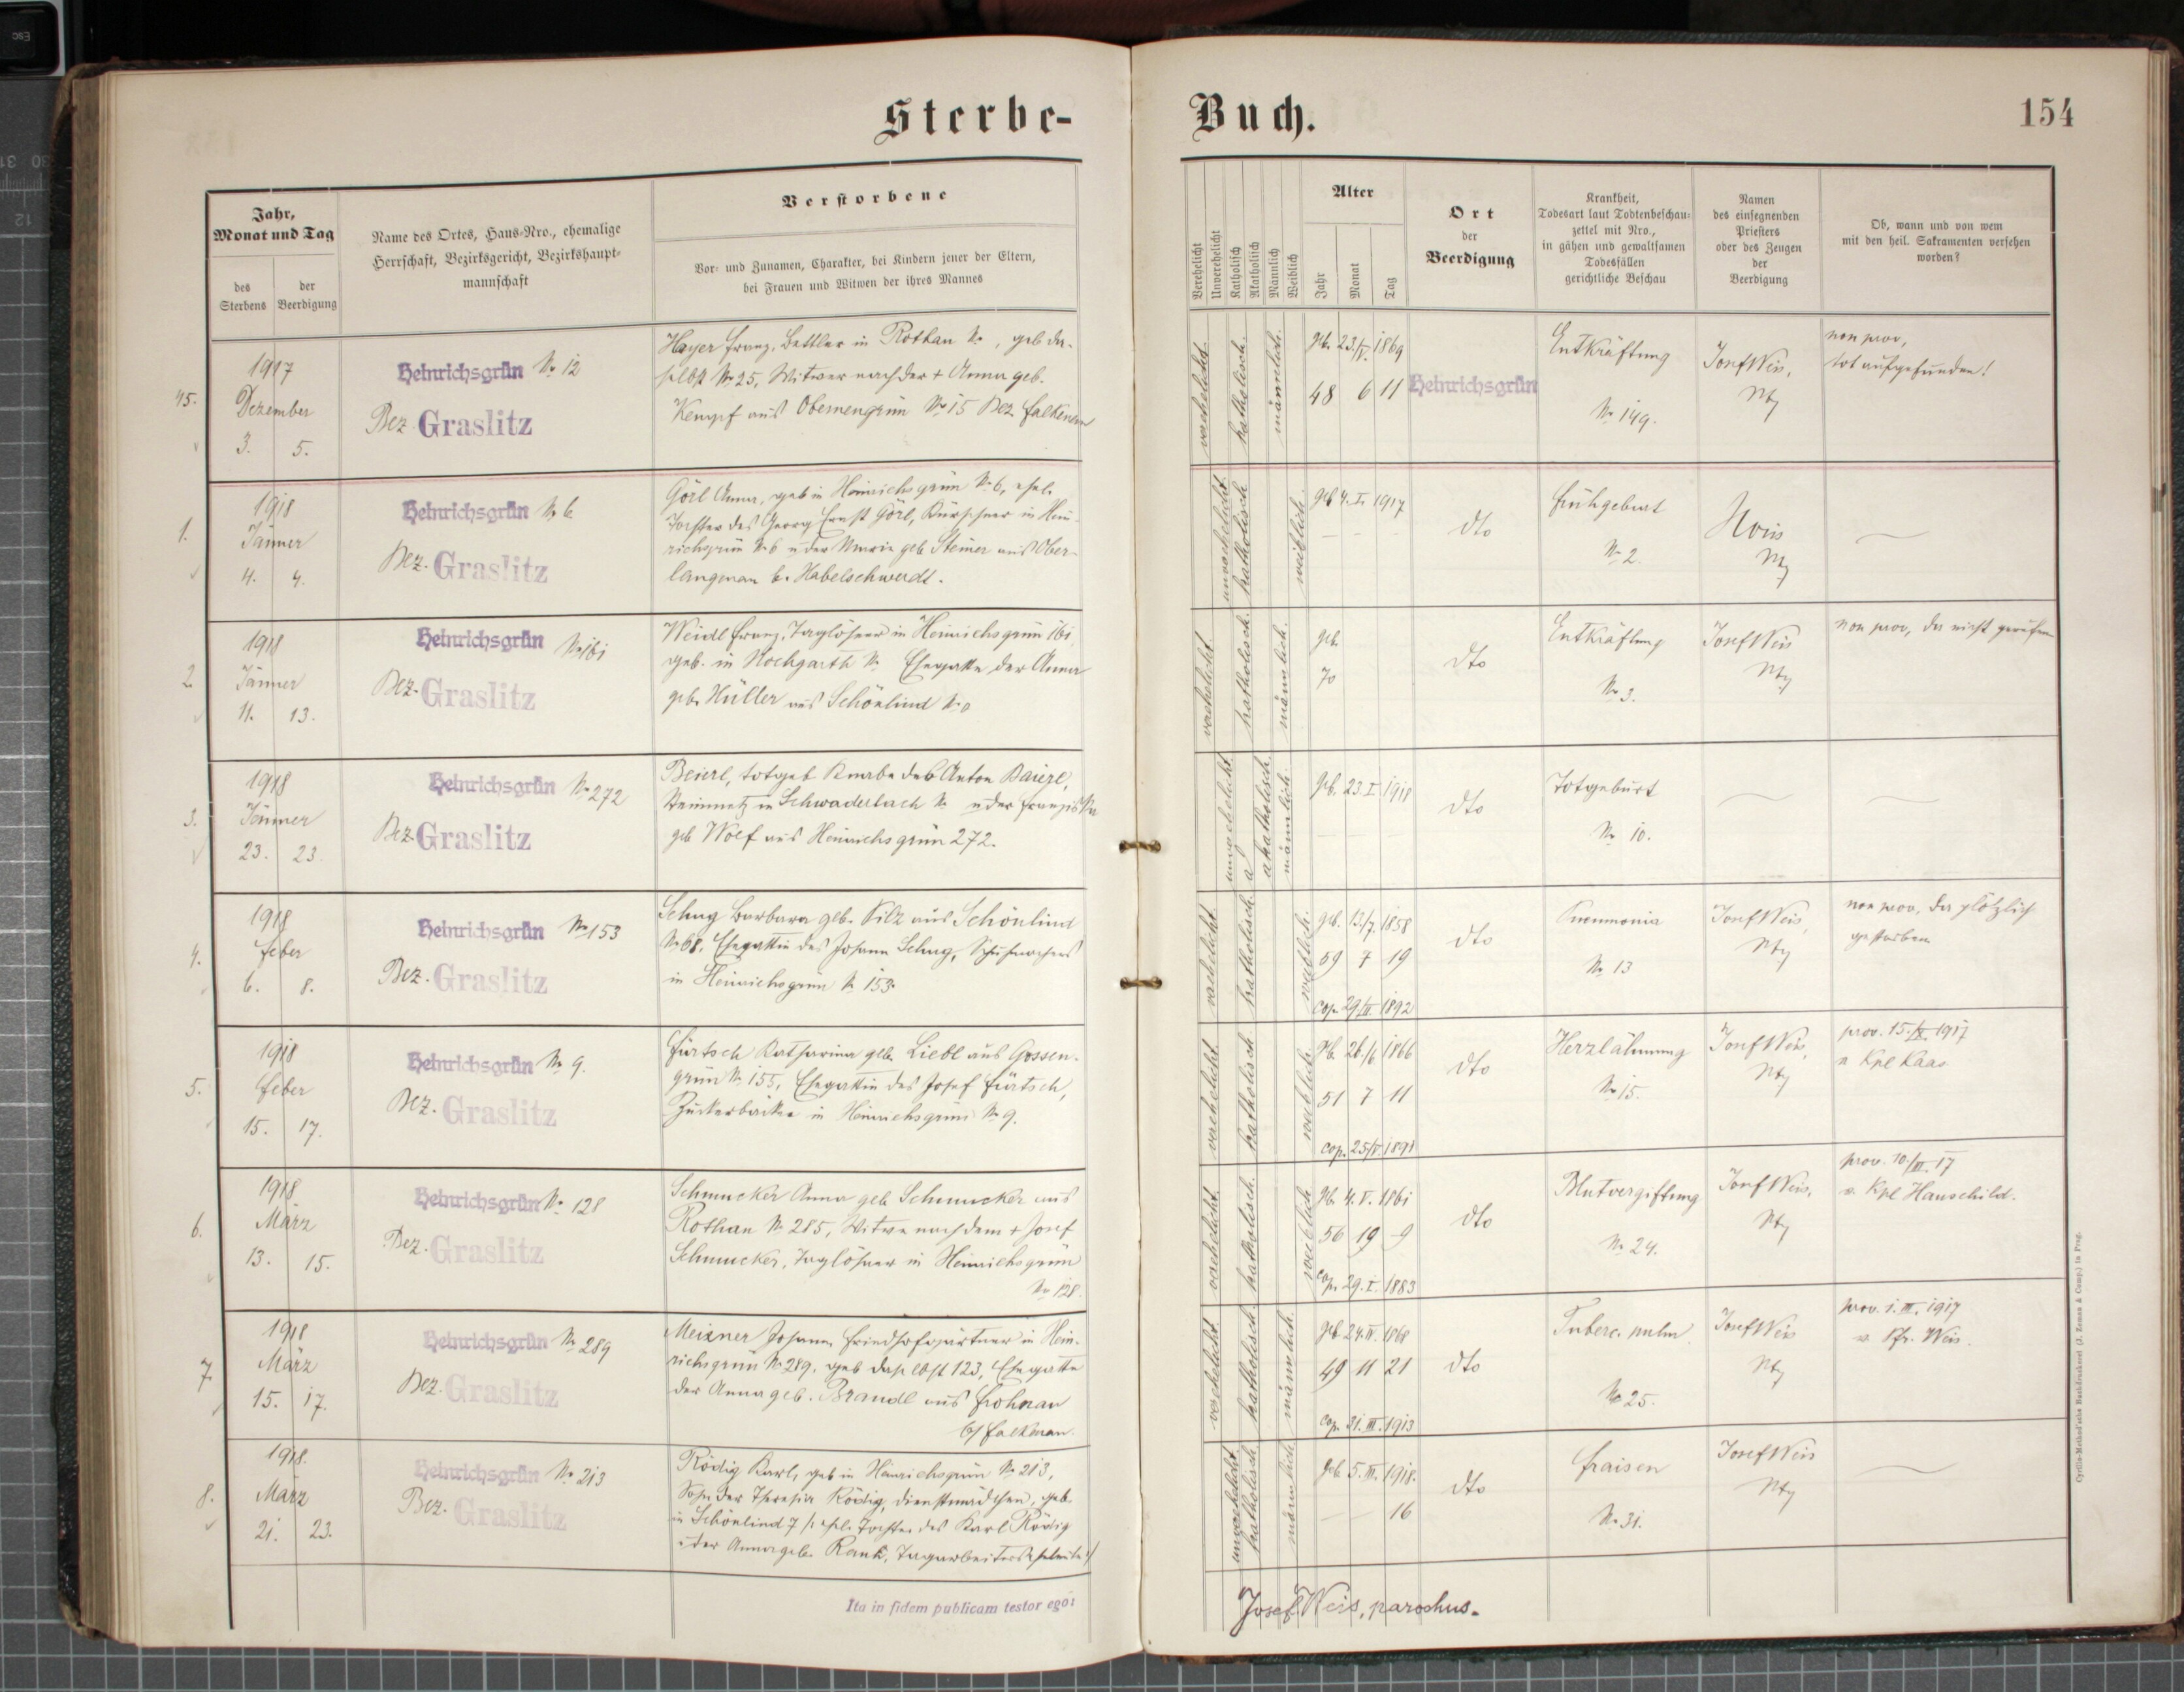 Sterbe-
Buch.
154
Jahr,
Monat und Tag
des
Sterbens
der
Beerdigung
Name des Ortes, Haus-Nro., ehemalige
Herrschaft, Bezirksgericht, Bezirkshaupt-
mannschaft
Verstorbene
Vor- und Zunamen, Charakter, bei Kindern jener der Eltern,
bei Frauen und Witwen der ihres Mannes
Verehelicht
Unverehelicht
Katholisch
Akatholisch
Männlich
Weiblich
Alter
Jahr
Monat
Tag
Ort
der
Beerdigung
Krankheit,
Todesart laut Todtenbeschau-
zettel mit Nro.,
in gähen und gewaltsamen
Todesfällen
gerichtliche Beschau
Namen
des einsegnenden
Priesters
oder des Zeugen
der
Beerdigung
Ob, wann und von wem
mit den heil. Sakramenten versehen
worden?
45.
1917
Dezember
3. 5.
Heinrichsgrün Nr 12
Bez. Graslitz
Hayer Franz, Bettler in Rothau Nr , geb da-
selbst Nr 25, Witwer nach der + Anna geb.
Kempf aus Obernengrün Nr 15 Bez. Falkenau
verehelicht
katholisch.
männlich.
geb. 23./V. 1869
48 6 11
Heinrichsgrün
Entkräftung
Nr 149.
Josef Weis,
non prov,
tot aufgefunden!
1.
1918
Jänner
4. 4.
Heinrichsgrün Nr 6
Bez. Graslitz
Görl Anna, geb in Heinrichsgrün Nr 6, ehel.
Tochter des Georg Ernst Görl, Kürschner in Hein-
richsgrün Nr 6 u der Maria geb Steiner aus Ober-
langenau b. Habelschwerdt.
unverehelicht
katholisch
weiblich.
geb 4. I. 1917
dto
Frühgeburt
Nr 2.
2.
1918
Jänner
11. 13.
Heinrichsgrün Nr 161
Bez. Graslitz
Weidl Franz, Taglöhner in Heinrichsgrün 161
geb. in Hochgarth Nr Ehegatte der Anna
geb. Hüller aus Schönlind Nr
verehelicht
katholisch.
männlich.
geb.
70
dto
Entkräftung
Nr 3.
Josef Weis
non prov, da nicht gerufen
3.
1918
Jänner
23. 23.
Heinrichsgrün Nr 272
Bez. Graslitz
Beierl, totgeb Knabe des Anton Baierl,
Steinmetz in Schwaderbach Nr u der Franziska
geb Wolf aus Heinrichsgrün 272.
unverehelicht
akatholisch
männlich.
geb. 23. I. 1918
dto
Totgeburt
Nr 10.
4.
1918
Feber
6. 8.
Heinrichsgrün Nr 153
Bez. Graslitz
Schug Barbara geb. Pilz aus Schönlind
Nr 68, Ehegattin des Johann Schug, Schuhmachers
in Heinrichsgrün Nr 153.
verehelicht
katholisch.
weiblich.
geb. 13./7. 1858
59 7 19
cop. 29/II. 1892
dto
Pneumonia
Nr 13
Josef Weis,
non prov, da plötzlich
gestorben
5.
1918
Feber
15. 17.
Heinrichsgrün Nr 9.
Bez. Graslitz
Fürtsch Katharina geb. Liebl aus Gossen-
grün Nr 155, Ehegattin des Josef Fürtsch,
Zuckerbäcker in Heinrichsgrün Nr 9.
verehelicht
katholisch
weiblich.
geb. 26./6 1866
51 7 11
cop. 25/V. 1891
dto
Herzlähmung
Nr 15.
Josef Weis,
prov. 15./X. 1917
v Kpl Kaas
6.
1918
März
13. 15.
Heinrichsgrün Nr 128
Bez. Graslitz
Schmucker Anna geb Schmucker aus
Rothau Nr 285, Witwe nach dem + Josef
Schmucker, Taglöhner in Heinrichsgrün
Nr 128.
verehelicht
katholisch.
weiblich
geb. 4. V. 1861
56 19 9
cop. 29. I. 1883
dto
Blutvergiftung
Nr 24.
Josef Weis,
prov. 10./II. 17
v. Kpl Hauschild.
7.
1918
März
15. 17.
Heinrichsgrün Nr 289
Bez. Graslitz
Meixner Johann Friedhofsgärtner in Hein-
richsgrün Nr 289, geb daselbst 123, Ehegatte
der Anna geb. Brandl aus Frohnau
b/ Falkenau.
verehelicht
katholisch.
männlich.
geb. 24. IV. 1868
49 11 21
cop. 31. III. 1913
dto
Tuberc. pulm
No 25.
Josef Weis
prov. 1. III. 1917
v. Pfr. Weis.
8.
1918.
März
21. 23.
Heinrichsgrün Nr 213
Bez. Graslitz
Rödig Karl, geb in Heinrichsgrün Nr 213,
Sohn der Theresia Rödig, Dienstmädchen, geb.
in Schönlind 7 /: ehel. Tochter des Karl Rödig
u der Anna geb. Rank, Tagarbeiters
unverehelicht
katholisch
männlich
geb. 5. III. 1918.
16
dto
Fraisen
Nr 31.
Josef Weis
Ita in fidem publicam testor ego:
Josef Weis, parochus.
Cyrillo-Method'sche Buchdruckerei (J. Zeman & Comp.) in Prag.
Esc